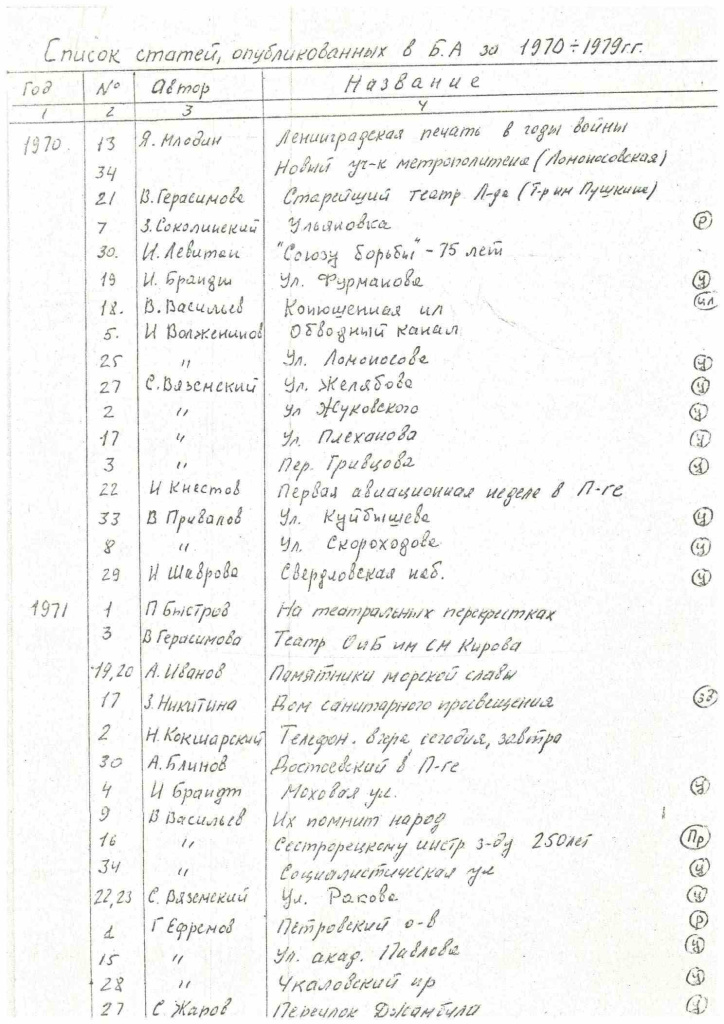 Список статей, опубликованных в Б.А за 1970÷1979гг.
Год № Автор Название
1 2 3 4
1970. 13 Я. Млодин Ленинградская печать в годы войны
34 Новый уч-к метрополитена (Ломоносовская)
21 В. Герасимова Старейший театр Л-да (Т-р им Пушкина)
7 З. Соколинский Ульяновка р
30. И. Левитан "Союзу борьбы" - 75 лет
19 И. Брандт Ул. Фурманова у
18. В. Васильев Конюшенная пл пл
5. И Волженинов Обводный канал
25 " Ул. Ломоносова у
27 С. Вяземский Ул. Желябова у
2 " Ул Жуковского у
17 " Ул. Плеханова у
3 " Пер. Гривцова у
22 И Кнестов Первая авиационная неделя в П-ге
33 В Привалов Ул. Куйбышева у
8 " Ул. Скороходова у
29 И Шаврова Свердловская наб. у
1971 1 П Быстров На театральных перекрестках
3 В Герасимова Театр ОиБ им СМ Кирова
19,20 А. Иванов Памятники морской славы
17 З. Никитина Дом санитарного просвещения зд
2 Н. Кокшарский Телефон. вчера, сегодня, завтра
30 А. Блинов Достоевский в П-ге
4 И Брандт Моховая ул. у
9 В Васильев Их помнит народ
16 " Сестрорецкому инстр з-ду 250лет Пр
34 " Социалистическая ул у
22,23 С. Вяземский Ул. Ракова у
1 Г Ефремов Петровский о-в р
15 " Ул. акад. Павлова у
28 " Чкаловский пр у
27 С. Жаров Переулок Джамбула у